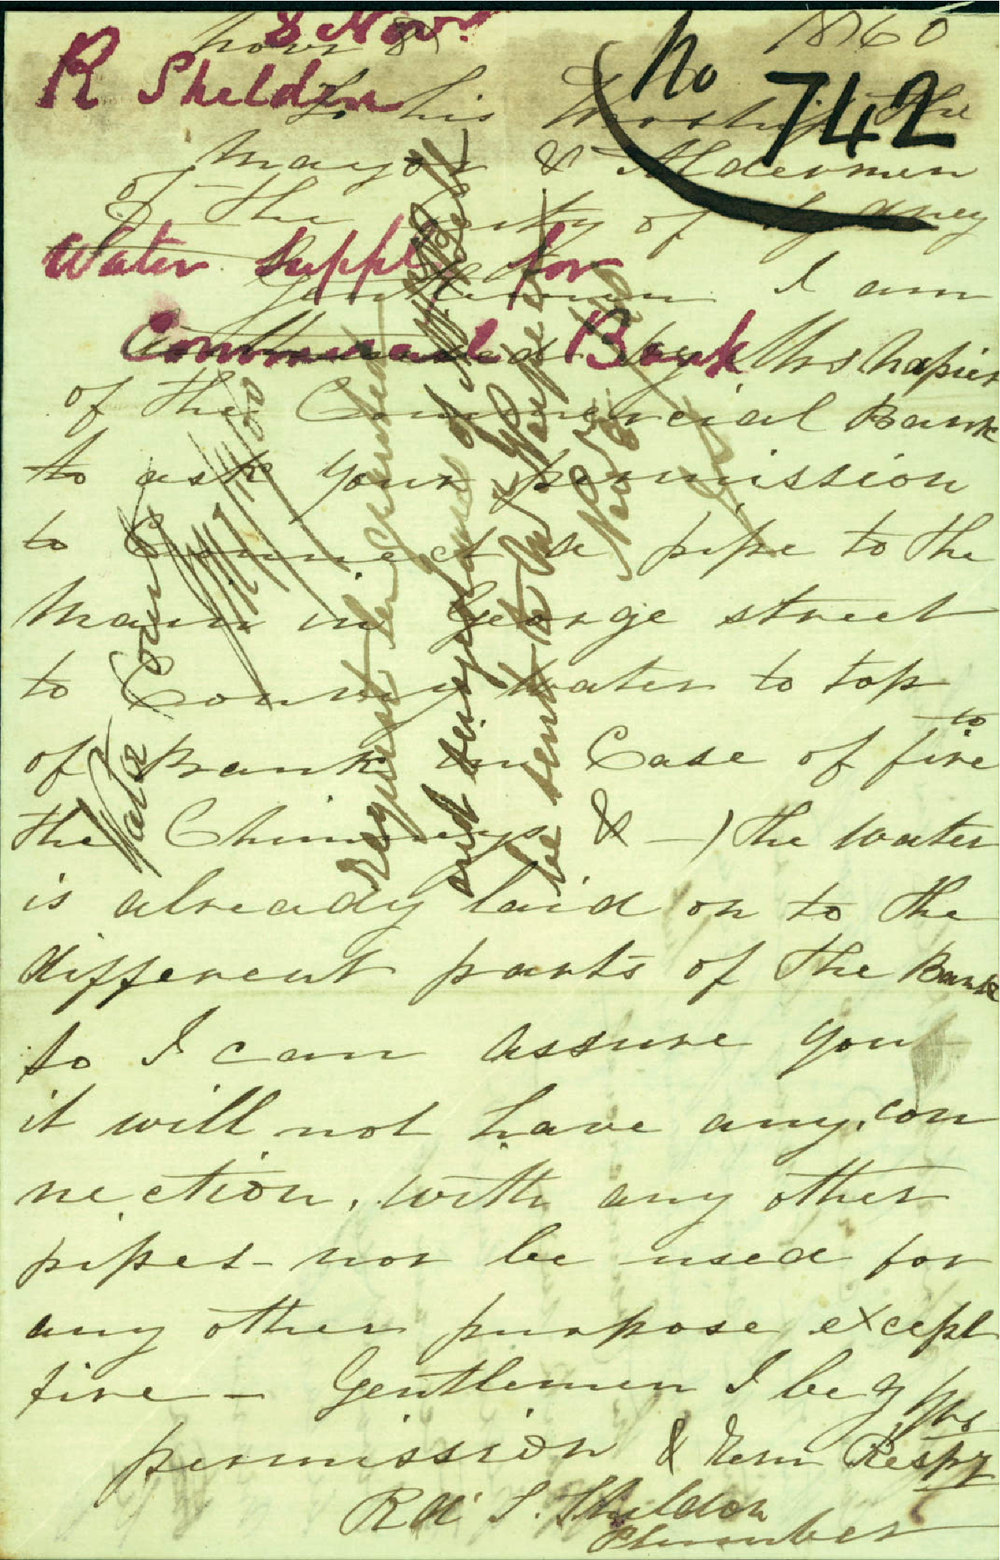 8 Nov.
R Sheldon
No
742
Water Supply for
Commercial Bank
Novr 8 1860
To his Worship The
Mayor & Aldermen
of The City of Sydney
Gentlemen I am
by Mr Napier
of The Commercial Bank
to ask your permission
to Connect a pipe to the
Main in George street
to Convey water to top
of Bank in Case of fire
to
the Chimneys & —) the water
is already laid on to the
different parts of the Bank
so I can assure you
it will not have any con
nection, with any other
pipes - nor be used for
any other purpose except
fire - Gentlemen I beg yr
permission & Rem Respy
Rd S. Sheldon
Plumber
Water Com
Request be granted
and
be sent to Mr Napier
Nov 60